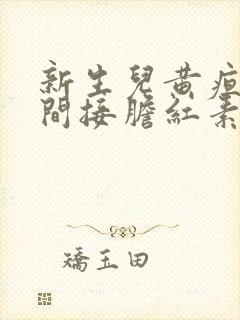 新生兒黃疸
間接膽紅素
矯玉田